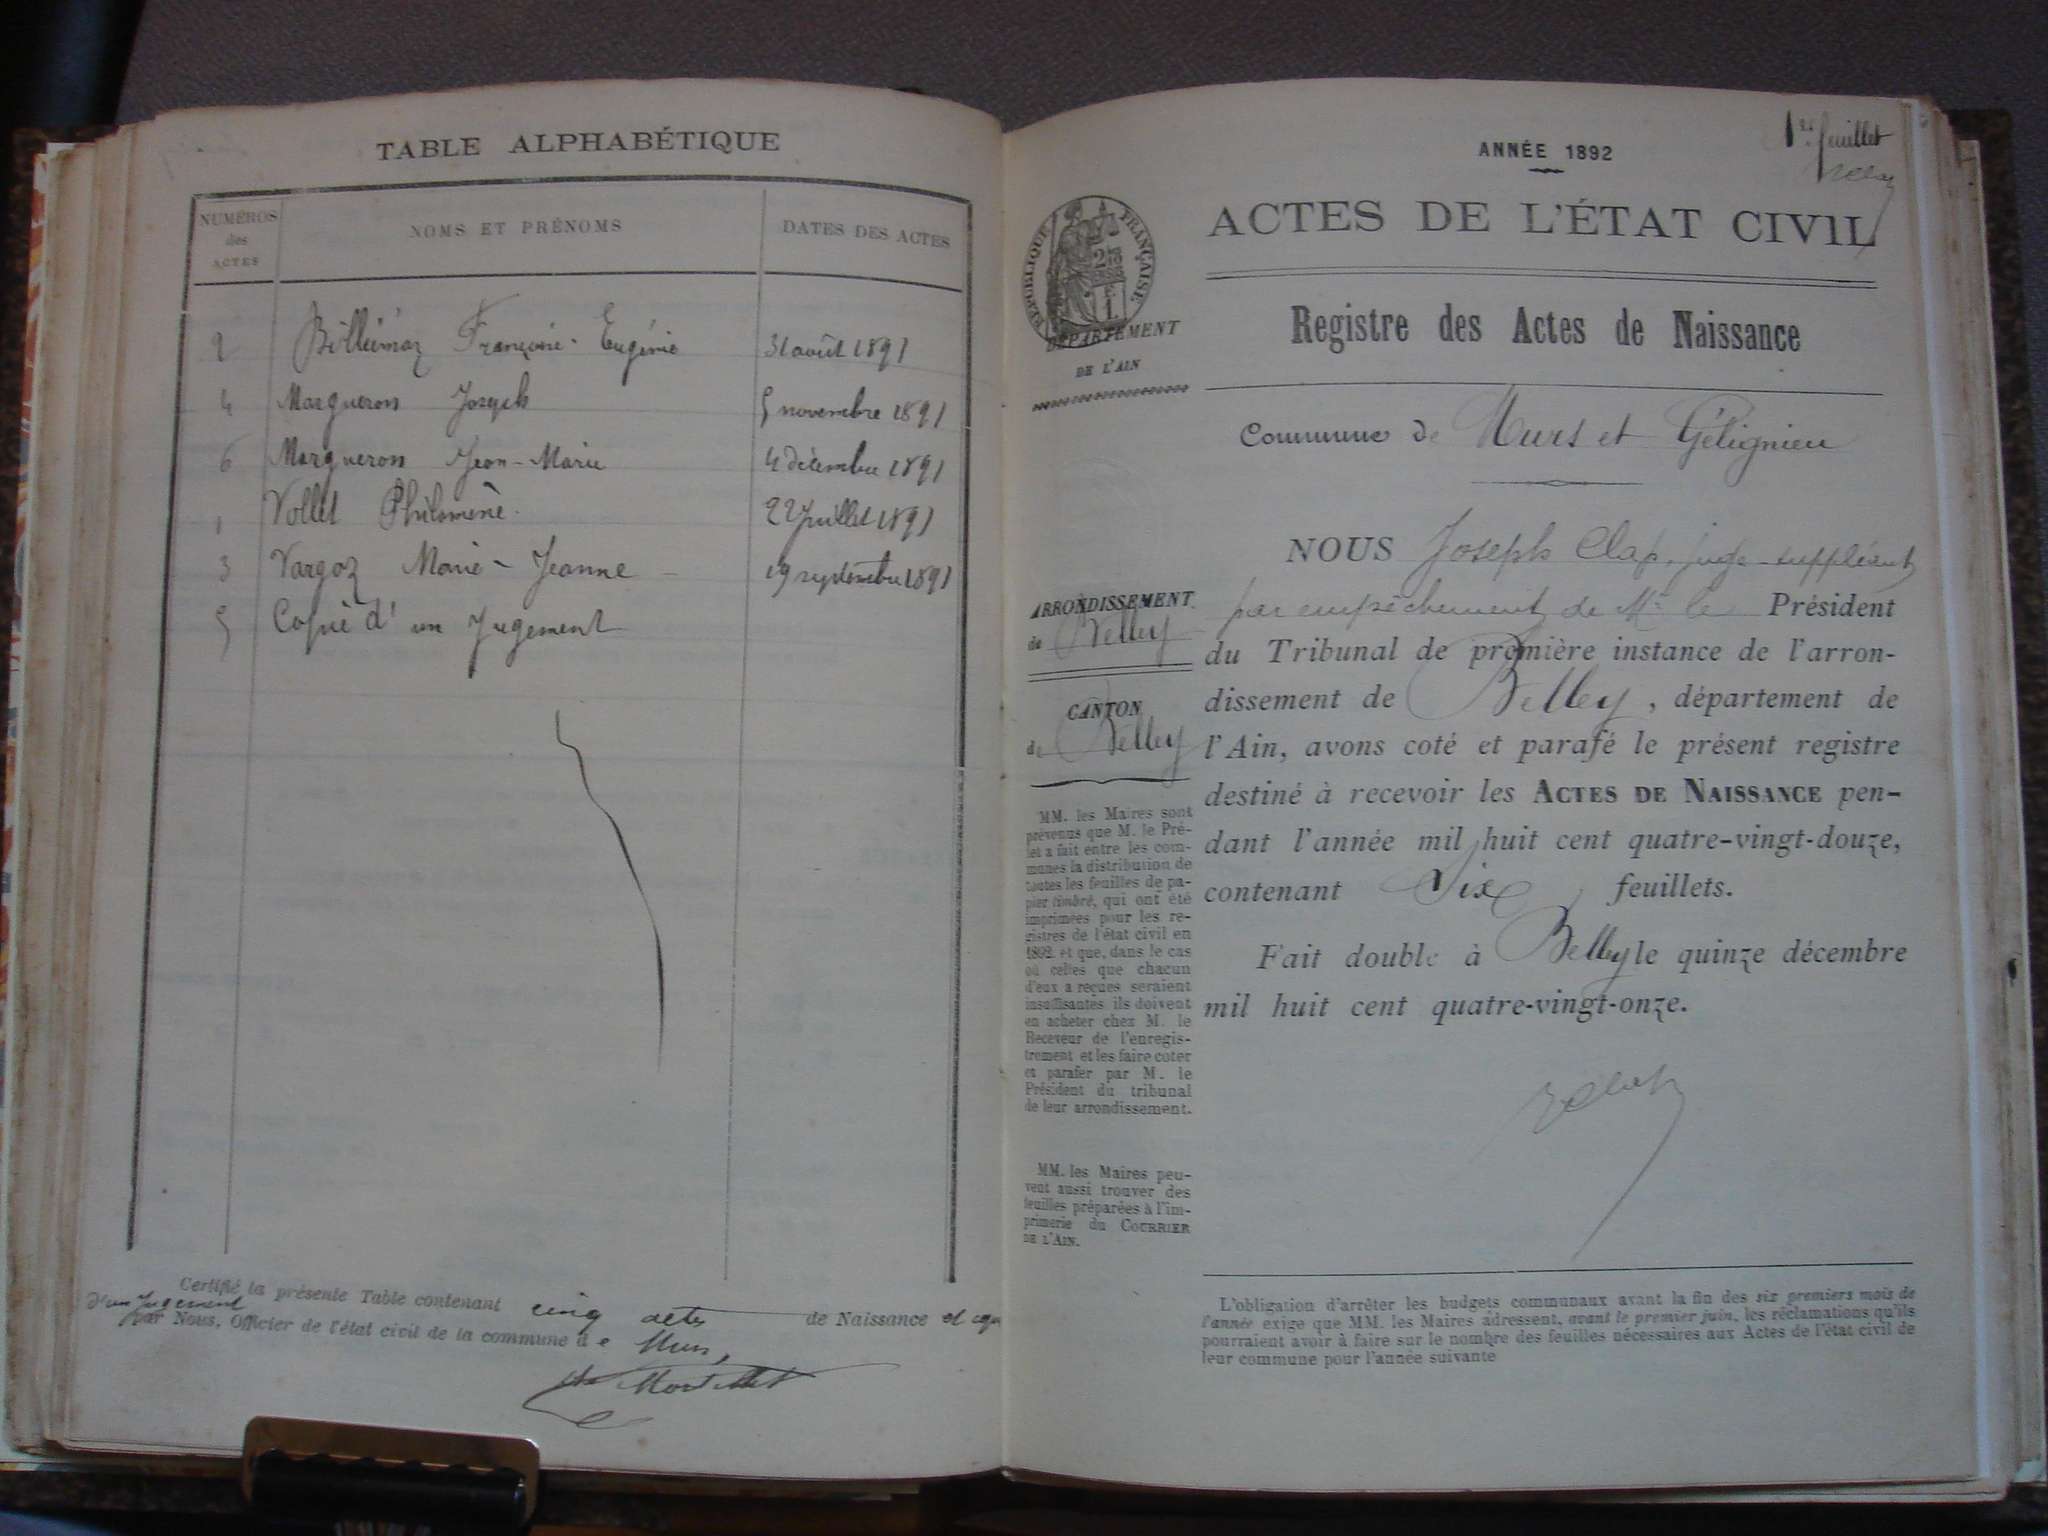 TABLE ALPHABÉTIQUE
NUMÉROS des ACTES NOMS ET PRÉNOMS DATES DES ACTES
2 Françoise-Eugénie 31 août 1891
4 Margueron Joseph 5 novembre 1891
6 Margueron Jean-Marie 4 décembre 1891
1 Vollet Philomène 22 Juillet 1891
3 Vargoz Marie-Jeanne 19 septembre 1891
5 Copie d'un Jugement
Certifié la présente Table contenant cinq actes de Naissance et
d'un Jugement
par Nous, Officier de l'état civil de la commune de Murs,
1er feuillet
ANNÉE 1892
ACTES DE L'ÉTAT CIVIL
RÉPUBLIQUE FRANÇAISE
DÉPARTEMENT
DE L'AIN
Registre des Actes de Naissance
Commune de Murs et Gélignieu
ARRONDISSEMENT
de Belley
CANTON
de Belley
MM. les Maires sont
prévenus que M. le Pré-
fet a fait entre les com-
munes la distribution de
toutes les feuilles de pa-
pier timbré, qui ont été
imprimées pour les re-
gistres de l'état civil en
1892 et que, dans le cas
où celles que chacun
d'eux a reçues seraient
insuffisantes ils doivent
en acheter chez M. le
Receveur de l'enregis-
trement et les faire coter
et parafer par M. le
Président du tribunal
de leur arrondissement.
MM. les Maires peu-
vent aussi trouver des
feuilles préparées à l'im-
primerie du COURRIER
DE L'AIN.
NOUS Joseph Clap, juge-suppléant
par empêchement de Mr le Président
du Tribunal de première instance de l'arron-
dissement de Belley, département de
l'Ain, avons coté et parafé le présent registre
destiné à recevoir les ACTES DE NAISSANCE pen-
dant l'année mil huit cent quatre-vingt-douze,
contenant Six feuillets.
Fait double à Belley le quinze décembre
mil huit cent quatre-vingt-onze.
L'obligation d'arrêter les budgets communaux avant la fin des six premiers mois de
l'année exige que MM. les Maires adressent, avant le premier juin, les réclamations qu'ils
pourraient avoir à faire sur le nombre des feuilles nécessaires aux Actes de l'état civil de
leur commune pour l'année suivante